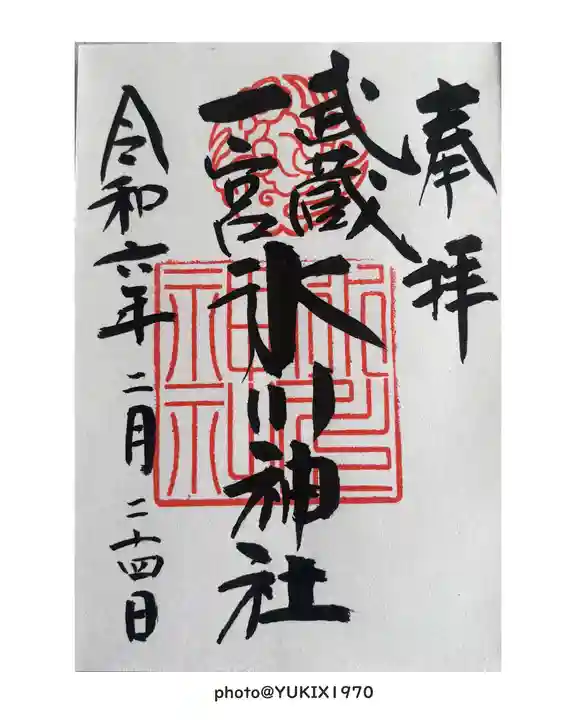 奉拝
武蔵
一宮
氷川神社
令和六年二月二十四日
photo@YUKIX1970